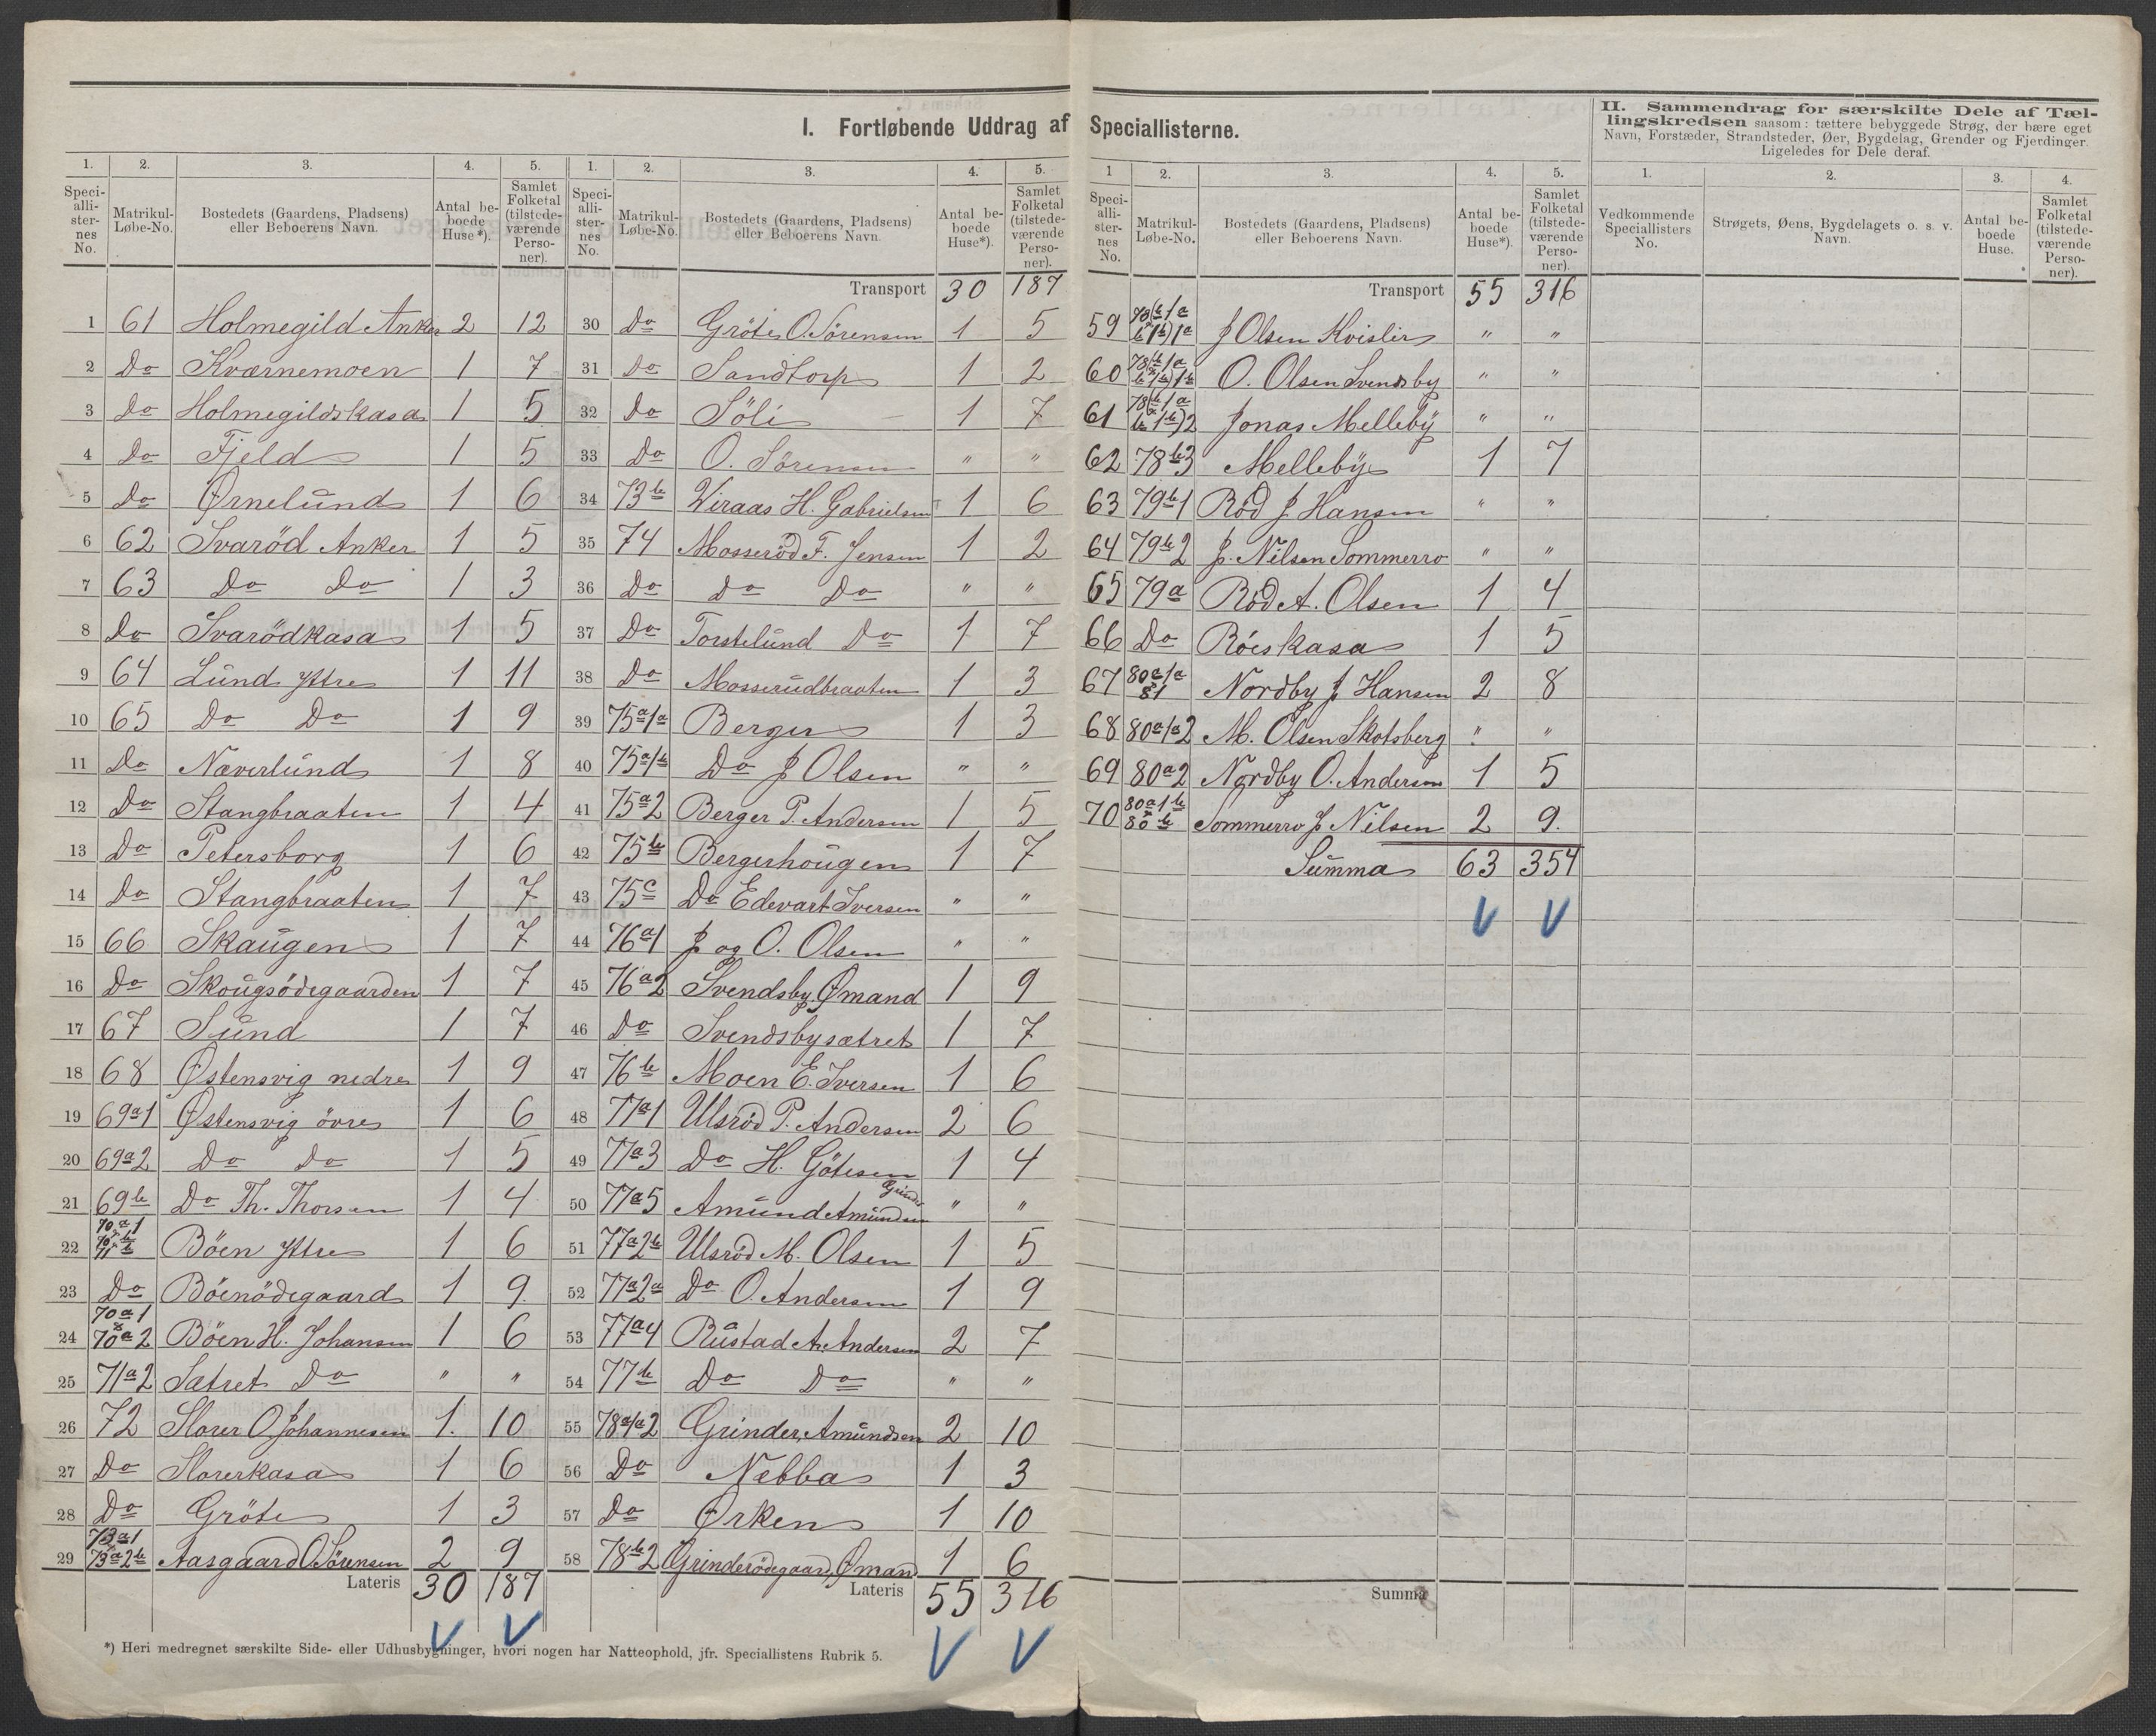 I. Fortløbende Uddrag af Speciallisterne.
II. Sammendrag for særskilte Dele af Tæl-
lingskredsen saasom: tættere bebyggede Strøg, der bære eget
Navn, Forstæder, Strandsteder, Øer, Bygdelag, Grender og Fjerdinger.
Ligeledes for Dele deraf.
1. 2. 3. 4. 5.
Speci-alli-ster-nes No. Matrikul-Løbe-No. Bostedets (Gaardens, Pladsens) eller Beboerens Navn. Antal be-boede Huse*). Samlet Folketal (tilstede-værende Perso-ner).
1 61 Holmegild Anker 2 12
2 Do Kværnemoen 1 7
3 Do Holmegildskasa 1 5
4 Do Fjeld 1 5
5 Do Ørnelund 1 6
6 62 Svaröd Anker 1 5
7 63 Do Do 1 3
8 Do Svarödkasa 1 5
9 64 Lund Yttre 1 11
10 65 Do Do 1 9
11 Do Næverlund 1 8
12 Do Stangbraaten 1 4
13 Do Petersborg 1 6
14 Do Stangbraaten 1 7
15 66 Skaugen 1 7
16 Do Skougsödegaarden 1 7
17 67 Sund 1 7
18 68 Østensvig nedre 1 9
19 69a1 Østensvig övre 1 6
20 69a2 Do Do 1 5
21 69b Do Th. Thorsen 1 4
22 Böen Yttre 1 6
23 Do Böenödegaard 1 9
24 70a1 & 70a2 Böen H. Johansen 1 6
25 71a2 Sætret Do " "
26 72 Slorer O Johannesen 1. 10
27 Do Slorerkasa 1 6
28 Do Gröte 1 3
29 73a1 73a2b Aasgaard O. Sörensen 2 9
Lateris 30 187
*) Heri medregnet særskilte Side- eller Udhusbygninger, hvori nogen har Natteophold, jfr. Speciallistens Rubrik 5.
1. 2. 3. 4. 5.
Speci-alli-ster-nes No. Matrikul-Løbe-No. Bostedets (Gaardens, Pladsens) eller Beboerens Navn. Antal be-boede Huse*). Samlet Folketal (tilstede-værende Perso-ner).
Transport 30 187
30 Do Gröte O. Sörensen 1 5
31 Do Sandtorp 1 2
32 Do Söli 1 7
33 Do O. Sörensen " "
34 73b Viraas H. Gabrielsen 1 6
35 74 Mosseröd F. Jensen 1 2
36 Do Do Do " "
37 Do Torstelund Do 1 7
38 Do Mosserudbraaten 1 3
39 75a1a Berger 1 3
40 75a1b Do J Olsen " "
41 75a2 Berger P. Andersen 1 5
42 75b Bergerhougen 1 7
43 75c Do Edevart Iversen " "
44 76a1 J og O. Olsen " "
45 76a2 Svendsby Ømand 1 9
46 Do Svendsbysætret 1 7
47 76b Moen E. Iversen 1 6
48 77a1 Ulsröd P. Andersen 2 6
49 77a3 Do H. Götesen 1 4
50 77a5 Amund Amundsen Grinder " "
51 77a2b Ulsröd M. Olsen 1 5
52 77a2a Do O. Andersen 1 9
53 77a4 Rustad A. Andersen 2 7
54 77b Do Do " "
55 78a1a2 Grinder, Amundsen 2 10
56 Do Nebba 1 3
57 Do Ørken 1 10
58 78b2 Grinderödegaard, Øman 1 6
Lateris 55 316
1 2. 3. 4. 5.
Speci-alli-ster-nes No. Matrikul-Løbe-No. Bostedets (Gaardens, Pladsens) eller Beboerens Navn. Antal be-boede Huse*). Samlet Folketal (tilstede-værende Perso-ner).
Transport 55 316
59 J Olsen Kvisler " "
60 O. Olsen Svendsby " "
61 Jonas Melleby " "
62 78b3 Melleby 1 7
63 79b1 Röd J Hansen " "
64 79b2 J. Nilsen Sommerro " "
65 79a Röd A. Olsen 1 4
66 Do Röeskasa 1 5
67 80a1a 81 Nordby J Hansen 2 8
68 80a1a2 M. Olsen Skotsberg " "
69 80a2 Nordby O. Andersen 1 5
70 80a1b & 80b Sommerro J Nilsen 2 9.
Summa 63 354
Summa
1. 2. 3. 4.
Vedkommende Speciallisters No. Strøgets, Øens, Bygdelagets o. s. v. Navn. Antal be-boede Huse. Samlet Folketal (tilstede-værende Perso-ner).